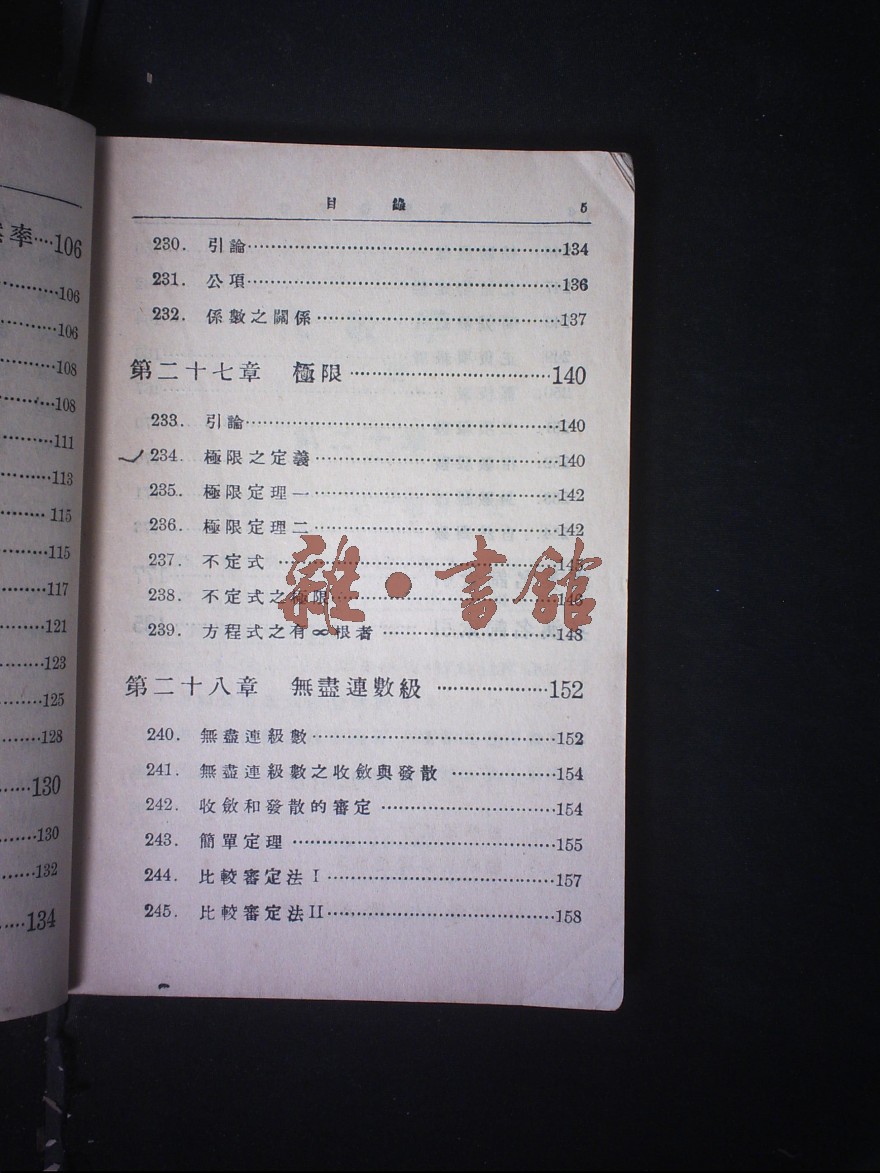 率····106
106
106
108
108
111
113
115
115
117
121
123
125
128
130
130
132
134
目 錄 5
230. 引論 134
231. 公項 136
232. 係數之關係 137
第二十七章 極限 140
233. 引論 140
234. 極限之定義 140
235. 極限定理一 142
236. 極限定理二 142
237. 不定式
238. 不定式之極限
239. 方程式之有∞根者 148
雜·書館
第二十八章 無盡連數級 152
240. 無盡連級數 152
241. 無盡連級數之收斂與發散 154
242. 收斂和發散的審定 154
243. 簡單定理 155
244. 比較審定法 I 157
245. 比較審定法 II 158